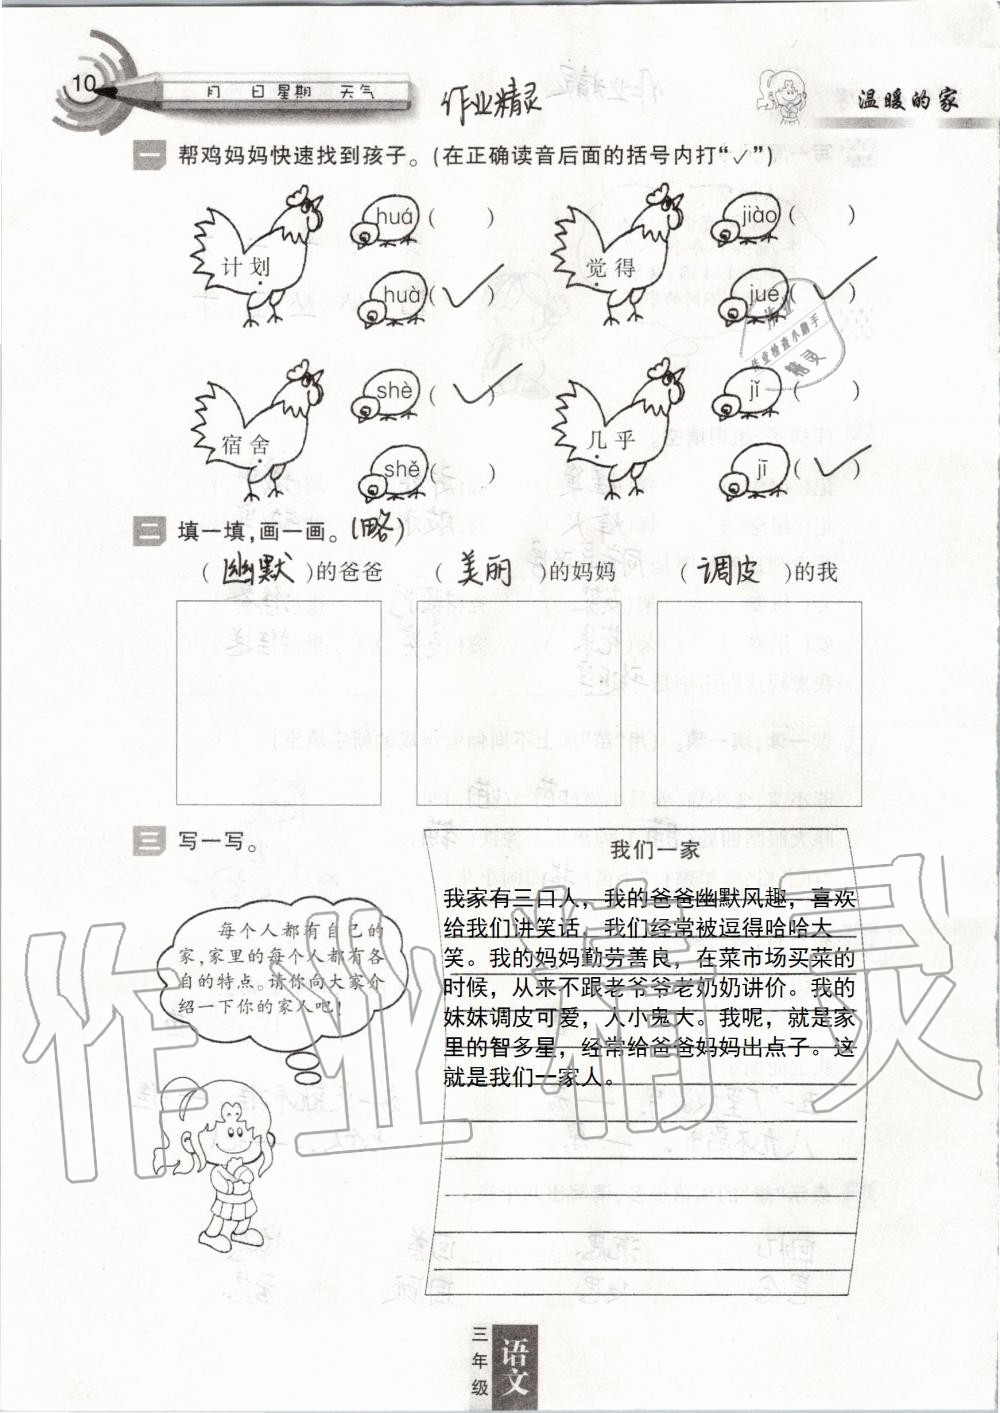 10
月 日 星期 天气
作业精灵
温暖的家
一 帮鸡妈妈快速找到孩子。(在正确读音后面的括号内打“✓”)
计划 huá( ) huà(✓)
觉得 jiào( ) jué(✓)
宿舍 shè(✓) shě( )
几乎 jǐ( ) jī(✓)
作业
作业检查小助手
精灵
二 填一填,画一画。(略)
(幽默)的爸爸 (美丽)的妈妈 (调皮)的我
三 写一写。
每个人都有自己的
家,家里的每个人都有各
自的特点。请你向大家介
绍一下你的家人吧!
我们一家
我家有三口人，我的爸爸幽默风趣，喜欢
给我们讲笑话，我们经常被逗得哈哈大
笑。我的妈妈勤劳善良，在菜市场买菜的
时候，从来不跟老爷爷老奶奶讲价。我的
妹妹调皮可爱，人小鬼大。我呢，就是家
里的智多星，经常给爸爸妈妈出点子。这
就是我们一家人。
作业精灵
三年级
语文